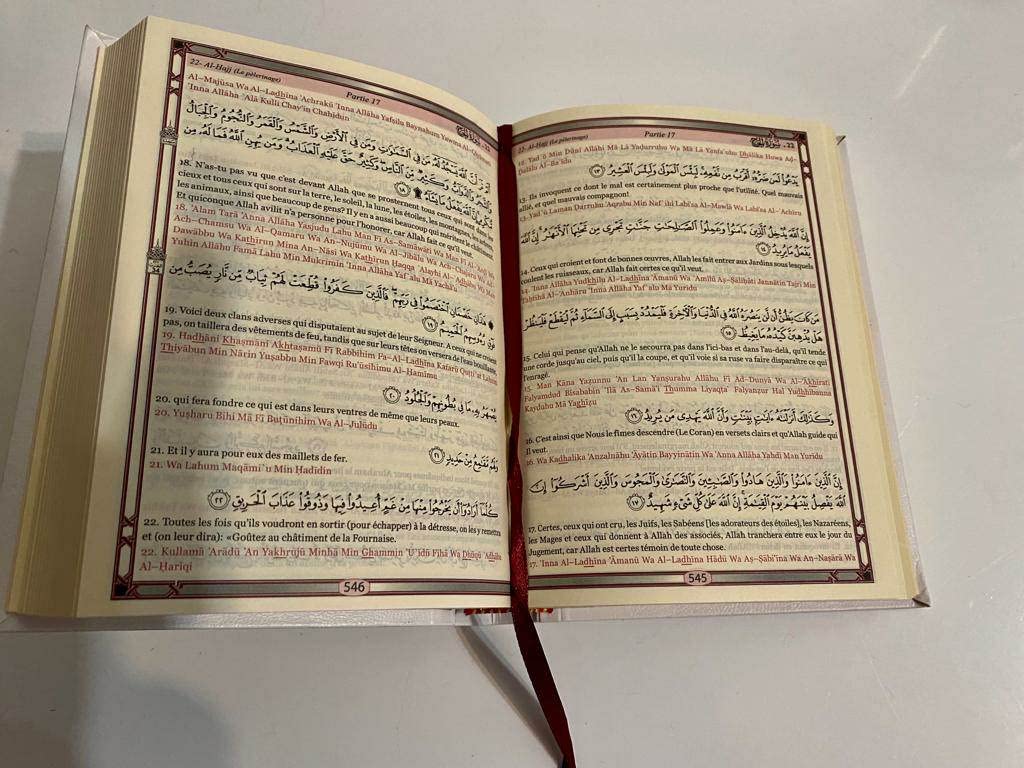 22- Al-Hajj (Le pèlerinage)
Partie 17
22 - سورة الحج
12. Yad`ū Min Dūni Allāhi Mā Lā Yaḍurruhu Wa Mā Lā Yanfa`uhu Dhālika Huwa Aḍ-
Ḍalālu Al-Ba`īdu
يَدْعُواْ لَمَن ضَرُّهُۥٓ أَقْرَبُ مِن نَّفْعِهِۦۚ لَبِئْسَ ٱلْمَوْلَىٰ وَلَبِئْسَ ٱلْعَشِيرُ ١٣
13. Ils invoquent ce dont le mal est certainement plus proche que l'utilité. Quel mauvais
allié, et quel mauvais compagnon!
13. Yad`ū Laman Ḍarruhu 'Aqrabu Min Naf`ihi Labi'sa Al-Mawlá Wa Labi'sa Al-`Ashīru
إِنَّ ٱللَّهَ يُدْخِلُ ٱلَّذِينَ ءَامَنُواْ وَعَمِلُواْ ٱلصَّٰلِحَٰتِ جَنَّٰتٍ تَجْرِى مِن تَحْتِهَا ٱلْأَنْهَٰرُۚ إِنَّ ٱللَّهَ
يَفْعَلُ مَا يُرِيدُ ١٤
14. Ceux qui croient et font de bonnes œuvres, Allah les fait entrer aux Jardins sous lesquels
coulent les ruisseaux, car Allah fait certes ce qu'il veut.
14. 'Inna Allāha Yudkhilu Al-Ladhīna 'Āmanū Wa `Amilū Aṣ-Ṣāliḥāti Jannātin Tajrī Min
Taḥtihā Al-'Anhāru 'Inna Allāha Yaf`alu Mā Yurīdu
مَن كَانَ يَظُنُّ أَن لَّن يَنصُرَهُ ٱللَّهُ فِى ٱلدُّنْيَا وَٱلْأَخِرَةِ فَلْيَمْدُدْ بِسَبَبٍ إِلَى ٱلسَّمَآءِ ثُمَّ لْيَقْطَعْ فَلْيَنظُرْ
هَلْ يُذْهِبَنَّ كَيْدُهُۥ مَا يَغِيظُ ١٥
15. Celui qui pense qu'Allah ne le secourra pas dans l'ici-bas et dans l'au-delà, qu'il tende
une corde jusqu'au ciel, puis qu'il la coupe, et qu'il voie si sa ruse va faire disparaître ce qui
l'enrage.
15. Man Kāna Yaẓunnu 'An Lan Yanṣurahu Allāhu Fī Ad-Dunyā Wa Al-'Ākhirati
Falyamdud Bisababin 'Ilá As-Samā'i Thumma Liyaqṭa` Falyanẓur Hal Yudhhibanna
Kayduhu Mā Yaghīẓu
وَكَذَٰلِكَ أَنزَلْنَٰهُ ءَايَٰتٍۭ بَيِّنَٰتٍ وَأَنَّ ٱللَّهَ يَهْدِى مَن يُرِيدُ ١٦
16. C'est ainsi que Nous le fîmes descendre (Le Coran) en versets clairs et qu'Allah guide qui
Il veut.
16. Wa Kadhalika 'Anzalnāhu 'Āyātin Bayyinātin Wa 'Anna Allāha Yahdī Man Yurīdu
إِنَّ ٱلَّذِينَ ءَامَنُواْ وَٱلَّذِينَ هَادُواْ وَٱلصَّٰبِـِٔينَ وَٱلنَّصَٰرَىٰ وَٱلْمَجُوسَ وَٱلَّذِينَ أَشْرَكُوٓاْ إِنَّ
ٱللَّهَ يَفْصِلُ بَيْنَهُمْ يَوْمَ ٱلْقِيَٰمَةِۚ إِنَّ ٱللَّهَ عَلَىٰ كُلِّ شَىْءٍ شَهِيدٌ ١٧
17. Certes, ceux qui ont cru, les Juifs, les Sabéens [les adorateurs des étoiles], les Nazaréens,
les Mages et ceux qui donnent à Allah des associés, Allah tranchera entre eux le jour du
Jugement, car Allah est certes témoin de toute chose.
17. 'Inna Al-Ladhīna 'Āmanū Wa Al-Ladhīna Hādū Wa Aṣ-Ṣābi'īna Wa An-Naṣārá Wa
545
22- Al-Hajj (Le pèlerinage)
Partie 17
22 - سورة الحج
Al-Majūsa Wa Al-Ladhīna 'Achrakū 'Inna Allāha Yafṣilu Baynahum Yawma Al-Qiyāmati
'Inna Allāha `Alá Kulli Chay'in Chahīdun
أَلَمْ تَرَ أَنَّ ٱللَّهَ يَسْجُدُ لَهُۥ مَن فِى ٱلسَّمَٰوَٰتِ وَمَن فِى ٱلْأَرْضِ وَٱلشَّمْسُ وَٱلْقَمَرُ وَٱلنُّجُومُ وَٱلْجِبَالُ
وَٱلشَّجَرُ وَٱلدَّوَآبُّ وَكَثِيرٌ مِّنَ ٱلنَّاسِۖ وَكَثِيرٌ حَقَّ عَلَيْهِ ٱلْعَذَابُۗ وَمَن يُهِنِ ٱللَّهُ فَمَا لَهُۥ مِن
مُّكْرِمٍۚ إِنَّ ٱللَّهَ يَفْعَلُ مَا يَشَآءُ ۩ ١٨
18. N'as-tu pas vu que c'est devant Allah que se prosternent tous ceux qui sont dans les
cieux et tous ceux qui sont sur la terre, le soleil, la lune, les étoiles, les montagnes, les arbres,
les animaux, ainsi que beaucoup de gens? Il y en a aussi beaucoup qui méritent le châtiment.
Et quiconque Allah avilit n'a personne pour l'honorer, car Allah fait ce qu'il veut.
18. 'Alam Tará 'Anna Allāha Yasjudu Lahu Man Fī As-Samāwāti Wa Man Fī Al-'Arḍi Wa
Ach-Chamsu Wa Al-Qamaru Wa An-Nujūmu Wa Al-Jibālu Wa Ach-Chajaru Wa Ad-
Dawābbu Wa Kathīrun Mina An-Nāsi Wa Kathīrun Ḥaqqa `Alayhi Al-`Adhābu Wa Man
Yuhin Allāhu Famā Lahu Min Mukrimin 'Inna Allāha Yaf`alu Mā Yachā'u
۞ هَٰذَانِ خَصْمَانِ ٱخْتَصَمُواْ فِى رَبِّهِمْۖ فَٱلَّذِينَ كَفَرُواْ قُطِّعَتْ لَهُمْ ثِيَابٌ مِّن نَّارٍ يُصَبُّ مِن
فَوْقِ رُءُوسِهِمُ ٱلْحَمِيمُ ١٩
19. Voici deux clans adverses qui disputaient au sujet de leur Seigneur. A ceux qui ne croient
pas, on taillera des vêtements de feu, tandis que sur leurs têtes on versera de l'eau bouillante.
19. Hadhāni Khaṣmāni Akhtaṣamū Fī Rabbihim Fa-Al-Ladhīna Kafarū Quṭṭi`at Lahum
Thiyābun Min Nārin Yuṣabbu Min Fawqi Ru'ūsihimu Al-Ḥamīmu
يُصْهَرُ بِهِۦ مَا فِى بُطُونِهِمْ وَٱلْجُلُودُ ٢٠
20. qui fera fondre ce qui est dans leurs ventres de même que leurs peaux.
20. Yuṣharu Bihi Mā Fī Buṭūnihim Wa Al-Julūdu
وَلَهُم مَّقَٰمِعُ مِنْ حَدِيدٍ ٢١
21. Et il y aura pour eux des maillets de fer.
21. Wa Lahum Maqāmi`u Min Ḥadīdin
كُلَّمَآ أَرَادُوٓاْ أَن يَخْرُجُواْ مِنْهَا مِنْ غَمٍّ أُعِيدُواْ فِيهَا وَذُوقُواْ عَذَابَ ٱلْحَرِيقِ ٢٢
22. Toutes les fois qu'ils voudront en sortir (pour échapper) à la détresse, on les y remettra
et (on leur dira): «Goûtez au châtiment de la Fournaise.
22. Kullamā 'Arādū 'An Yakhrujū Minhā Min Ghammin 'U`īdū Fīhā Wa Dhūqū `Adhāba
Al-Ḥarīqi
546